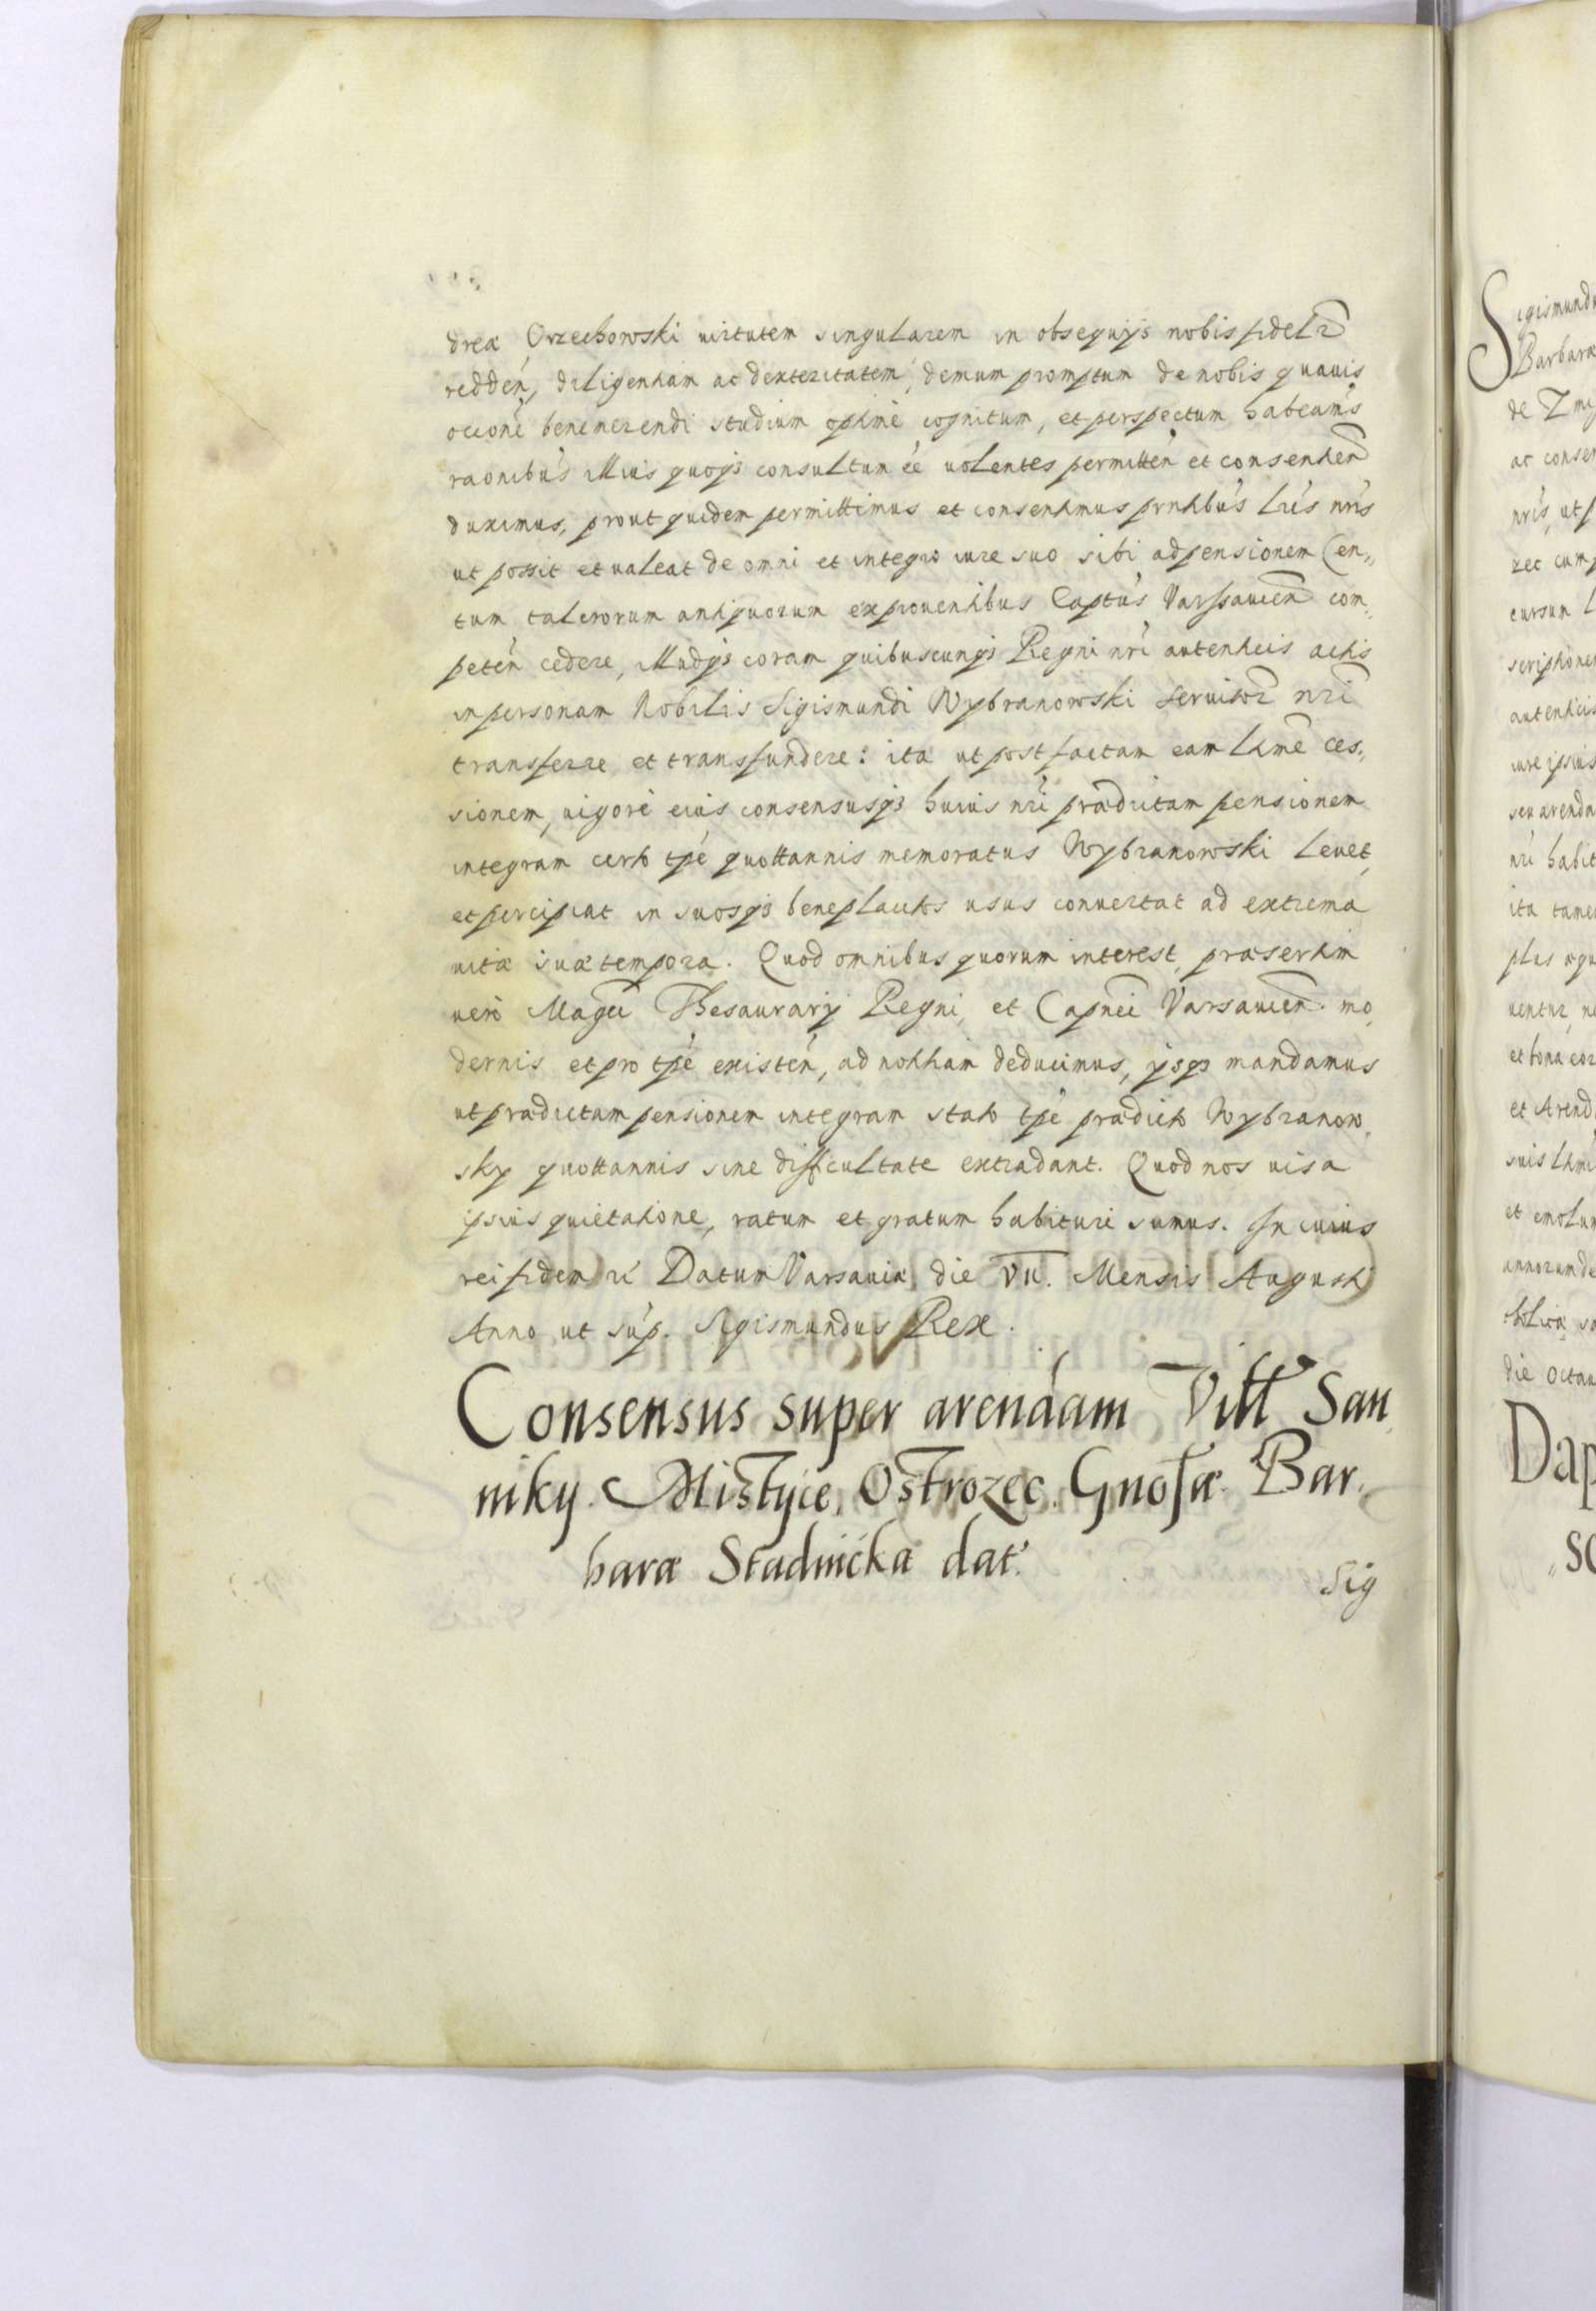 dreæ Orzechowski uirtutem singularem in obsequijs nobis fidelr̃
redden̄, diligentiam ac dexteritatem, demum promptum de nobis quauis
occone benemerendi studium optime cognitum, et perspectum habeam's
raonibu's illius quoqȝ consultum eē uolentes permitten̄ et consentien̄
duximus, prout quidem permittimus et consentimus prntibu's lris nris
ut possit et ualeat de omni et integro iure suo sibi ad pensionem Cen„
tum talerorum antiquorum ex prouentibus Captu's Varssauien̄ com,
peten̄ cedere, illudqȝ coram quibuscunqȝ Regni nri autenticis actis
in personam Nobilis Sigismundi Wybranowski seruitor̃ nri
transferre et transfundere: ita ut post factam eam ltime ces,
sionem, uigore eius consensusqȝ huius nri prædictam pensionem
integram certo tpe quottannis memoratus Wybranowski leuet,
et percipiat in suosqȝ beneplacitos usus conuertat ad extrema
uitæ suæ tempora. Quod omnibus quorum interest, præsertim
uero Magci Thesaurarij Regni, et Capnei Varsauien̄. mo,
dernis et pro tpe existen̄, ad notitiam deducimus, ysqȝ mandamus
ut prædictam pensionem integram stato tpe prædicto Wybranow,
sky quottannis sine difficultate extradant. Quod nos uisa
ipsius quietatione, ratum et gratum habituri sumus. In cuius
rei fidem rc̃ Datum Varsauiæ die VII. Mensis Augusti
Anno ut sup. Sigismundus Rex.
Consensus super arendam Vill San,
niky. Mistyce. Ostrozec. Gnosæ. Bar,
baræ Stadnicka dat.
Sig
Sigismundu
Barbaræ
de Zmi
ac consen
nris, ut p
zec cum
cursum l
scriptione
autenticis
iure ipsius
seu arenda
nri habit
ita tamen
plus æqu
uentur, ne
et bona eor
et Arend
suis ltimi
et emolum
annorum de
tholicæ so
die Octau
Dap
„so